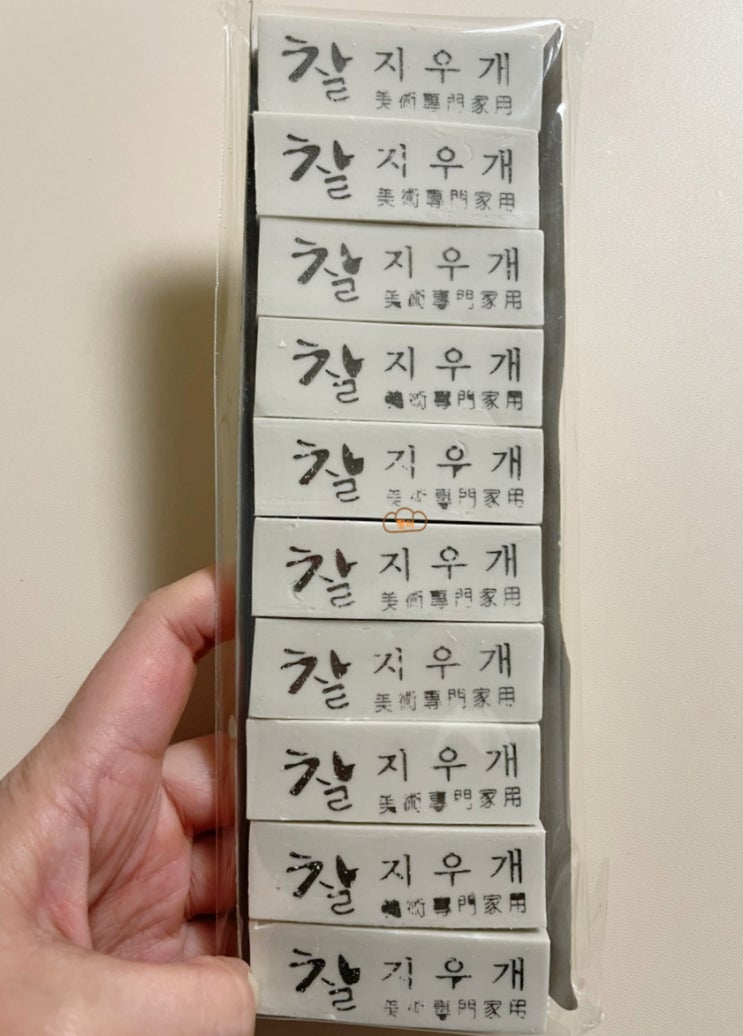 찰 지우개
美術專門家用
찰 지우개
美術專門家用
찰 지우개
美術專門家用
찰 지우개
美術專門家用
찰 지우개
美術專門家用
찰 지우개
美術專門家用
찰 지우개
美術專門家用
찰 지우개
美術專門家用
찰 지우개
美術專門家用
찰 지우개
美術專門家用